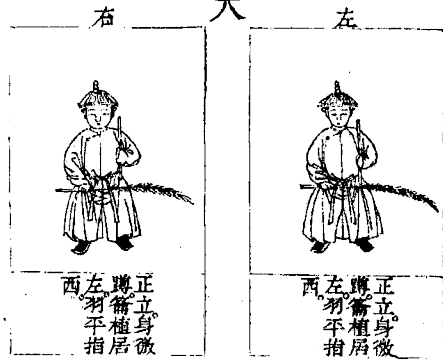 左
正立。身微
蹲。籥植居
左。羽平指
西。
右
正立。身微
蹲。籥植居
左。羽平指
西。